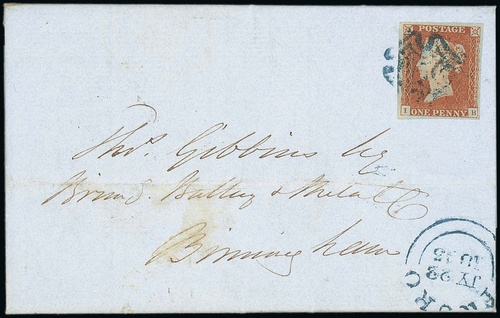 POSTAGE
I B
ONE PENNY
Thos. Gibbins Esq
Birmd. Battery & Metal Co
Birmingham
JY 22